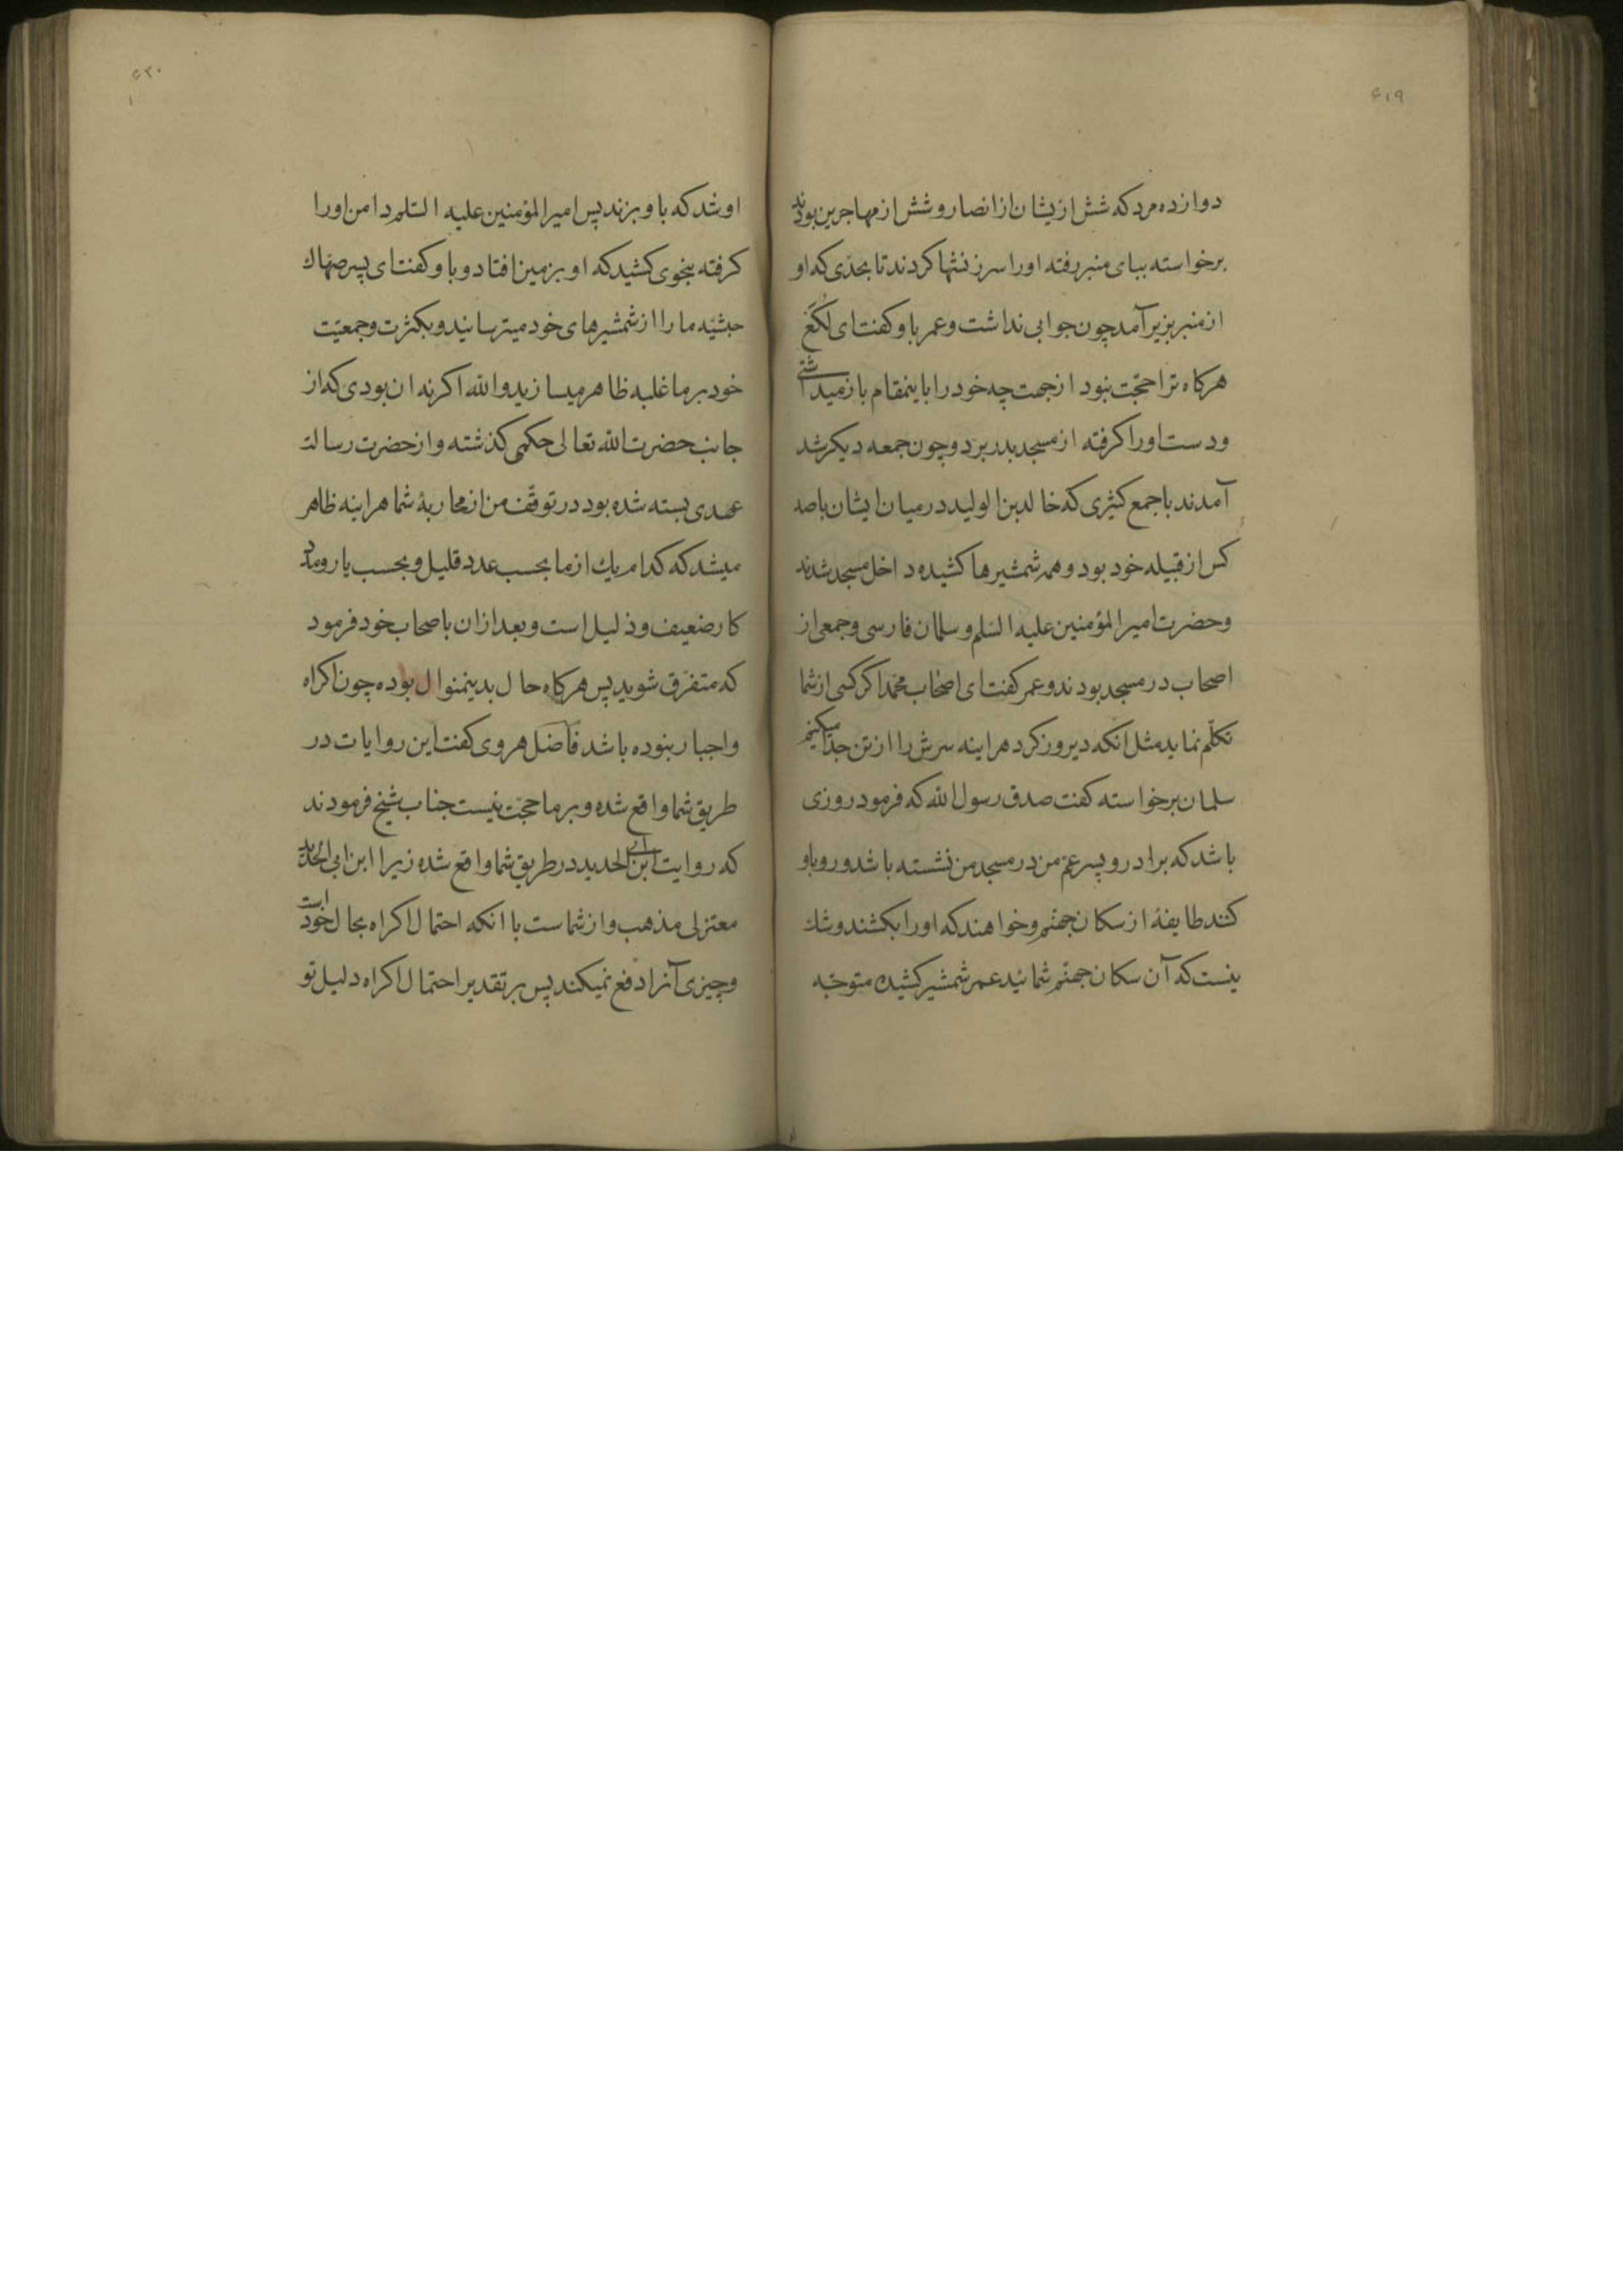 ۶۱۹
دوازده مرد که شش ازیشان از انصار و شش از مهاجرین بودند
برخواسته بپای منبر رفته او را سرزنشها کردند تا بحدّی که او
از منبر بزیر آمد چون جوابی نداشت و عمر باو کفت ای لکع
هرکاه ترا حجّت نبود از جهت چه خود را باینمقام باز میداشتی
و دست او را کرفته از مسجد بدر برد و چون جمعه دیکر شد
آمدند با جمع کثیری که خالد بن الولید در میان ایشان با صد
کس از قبیله خود بود و همه شمشیرها کشیده داخل مسجد شدند
و حضرت امیر المؤمنین علیه السّلم و سلمان فارسی و جمعی از
اصحاب در مسجد بودند و عمر کفت ای اصحاب محمّد اکر کسی از شما
تکلّم نماید مثل انکه دیروز کرد هراینه سرش را از تن جدا میکنیم
سلمان برخواسته کفت صدق رسول الله که فرمود روزی
باشد که برادر و پسر عمّ من در مسجد من نشسته باشد و رو باو
کنند طایفهٔ از سکان جهنّم و خواهند که او را بکشند و شك
نیست که آن سکان جهنّم شمائید عمر شمشیر کشیده متوجّه
۶۲۰
۱
او شد که باو بزند پس امیر المؤمنین علیه السّلم دامن او را
کرفته بنحوی کشید که او بزمین افتاد و باو کفت ای پسر صهاك
حبشیّه ما را از شمشیرهای خود میترسانید و بکثرت و جمعیّت
خود بر ما غلبه ظاهر میسازید والله اکر نه ان بودی که از
جانب حضرت الله تعالی حکمی کذشته و از حضرت رسالت
عهدی بسته شده بود در توقّف من از محاربهٔ شما هراینه ظاهر
میشد که کدام یك از ما بحسب عدد قلیل و بحسب یار و مدد
کار ضعیف و ذلیل است و بعد ازان باصحاب خود فرمود
که متفرّق شوید پس هرکاه حال بدینمنوال بوده چون اکراه
و اجبار نبوده باشد فاضل هروی کفت این روایات در
طریق شما واقع شده و بر ما حجّت نیست جناب شیخ فرمودند
که روایت ابن ابی الحدید در طریق شما واقع شده زیرا ابن ابی الحدید
معتزلی مذهب و از شماست با انکه احتمال اکراه بحال خود است
و چیزی آنرا دفع نمیکند پس بر تقدیر احتمال اکراه دلیل تو